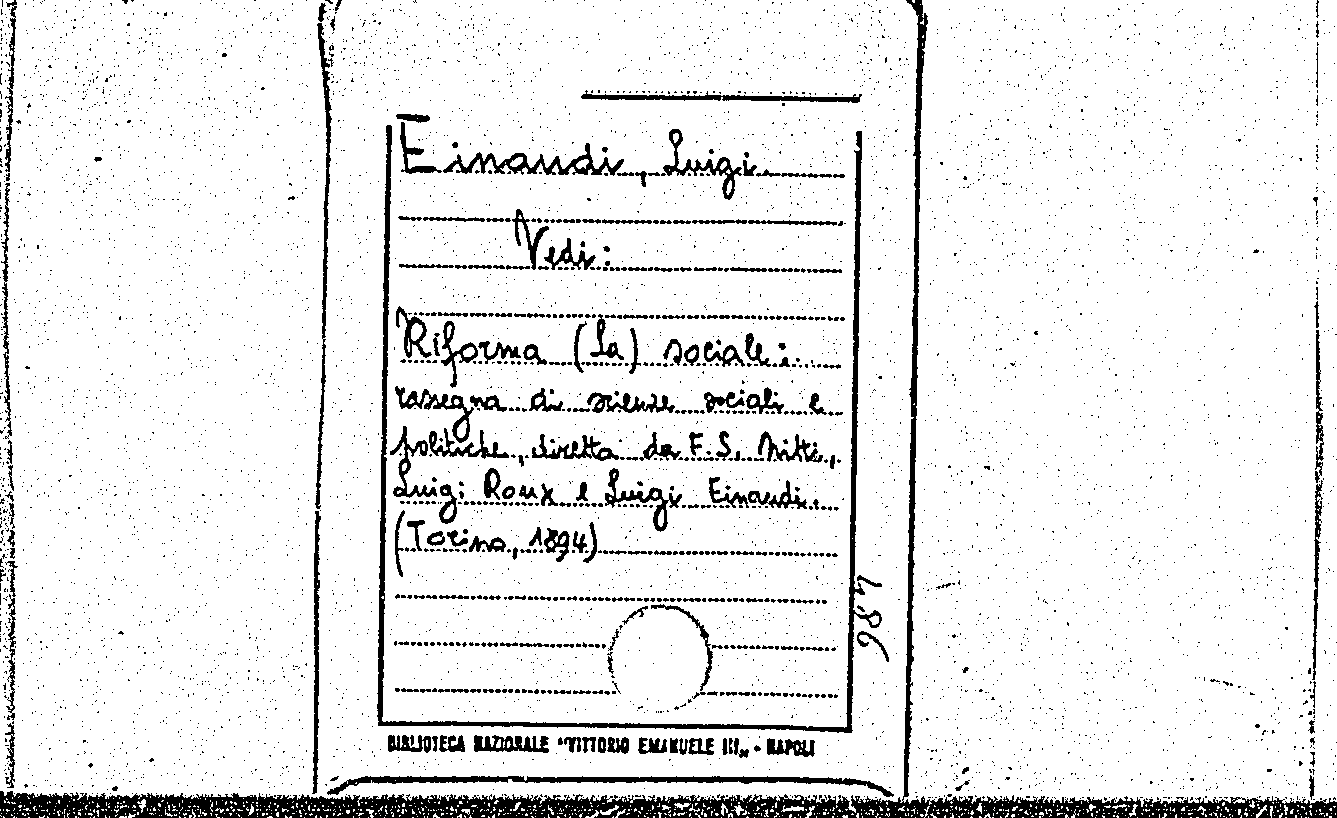 Einaudi, Luigi.
Vedi:
Riforma (La) sociale:
rassegna di scienze sociali e
politiche, diretta da F. S. Nitti,
Luigi Roux e Luigi Einaudi.
(Torino, 1894)
486
BIBLIOTECA NAZIONALE "VITTORIO EMANUELE III„ - NAPOLI